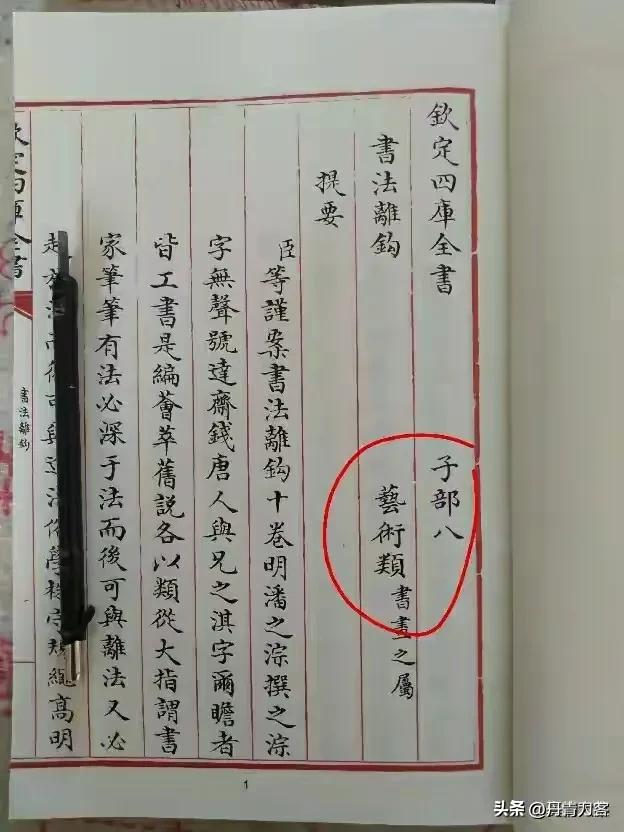 欽定四庫全書 子部八
書法離鈎 藝術類書畫之屬
提要
臣等謹案書法離鈎十卷明潘之淙撰之淙
字無聲號達齋錢唐人與兄之淇字爾瞻者
皆工書是編薈萃舊説各以類從大指謂書
家筆筆有法必深于法而後可與離法又必
法而可與法高明
欽定四庫全書
書法離鈎
1
头条